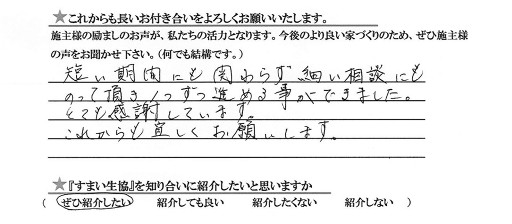 ★これからも長いお付き合いをよろしくお願いいたします。
施主様の励ましのお声が、私たちの活力となります。今後のより良い家づくりのため、ぜひ施主様
の声をお聞かせ下さい。(何でも結構です。)
短い期間にも関わらず細い相談にも
のって頂き1つずつ進める事ができました。
とても感謝しています。
これからも宜しくお願いします。
★『すまい生協』を知り合いに紹介したいと思いますか
( ぜひ紹介したい 紹介しても良い 紹介したくない 紹介しない )